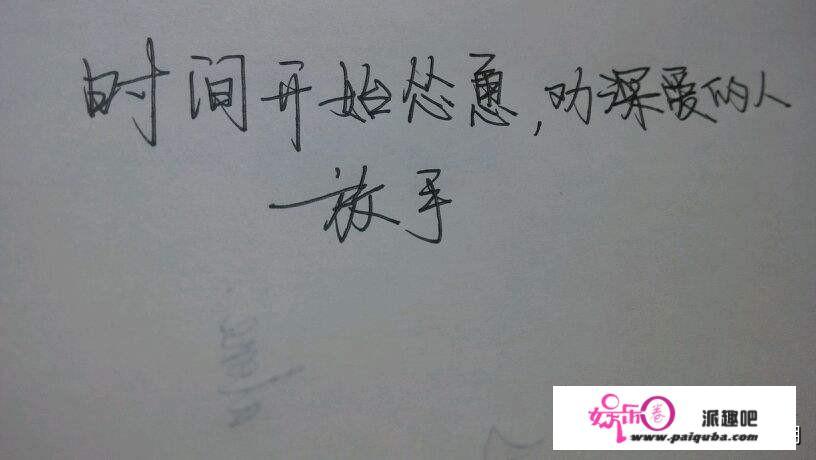 时间开始怂恿,劝深爱的人
放手
娱乐圈 派趣吧
www.paiquba.com